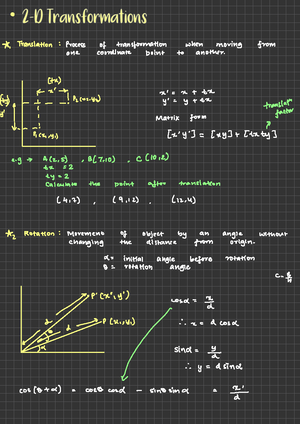 • 2-D Transformations
* Translation : Process of transformation when moving from
one coordinate point to another.
(tx)
x'
P2 (x2,y2)
P1(x1,y1)
x' = x + tx
y' = y + ty
Matrix form
translate
factor
[x'y'] = [xy] + [txty]
e.g → A(2,5) , B(7,10) , C(10,2)
tx = 2
ty = 2
Calculate the point after translation
(4,7) , (9,12) , (12,4)
*2 Rotation : Movement of object by an angle without
changing the distance from origin.
α = initial angle before rotation
θ = rotation angle
P'(x',y')
d
d
P(x1,y1)
θ
α
cosα = x/d
∴ x = d cosα
sinα = y/d
∴ y = d sinα
cos(θ+α) = cosθ cosα - sinθ sinα = x'/d